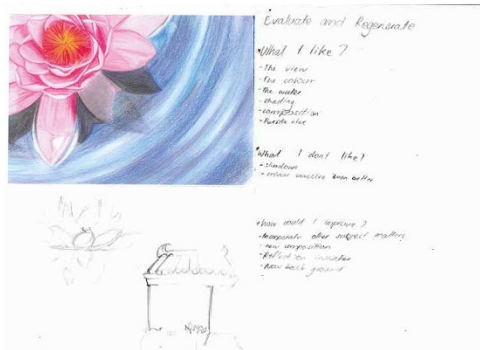 Evaluate and Regenerate
What I like?
- The view
- The colour
- The water
- shading
- composition
What I dont like?
- shadows
- colour
been better
How could I improve?
- Incorporate other subject matters
- new composition
- Reflection in water
- New back ground